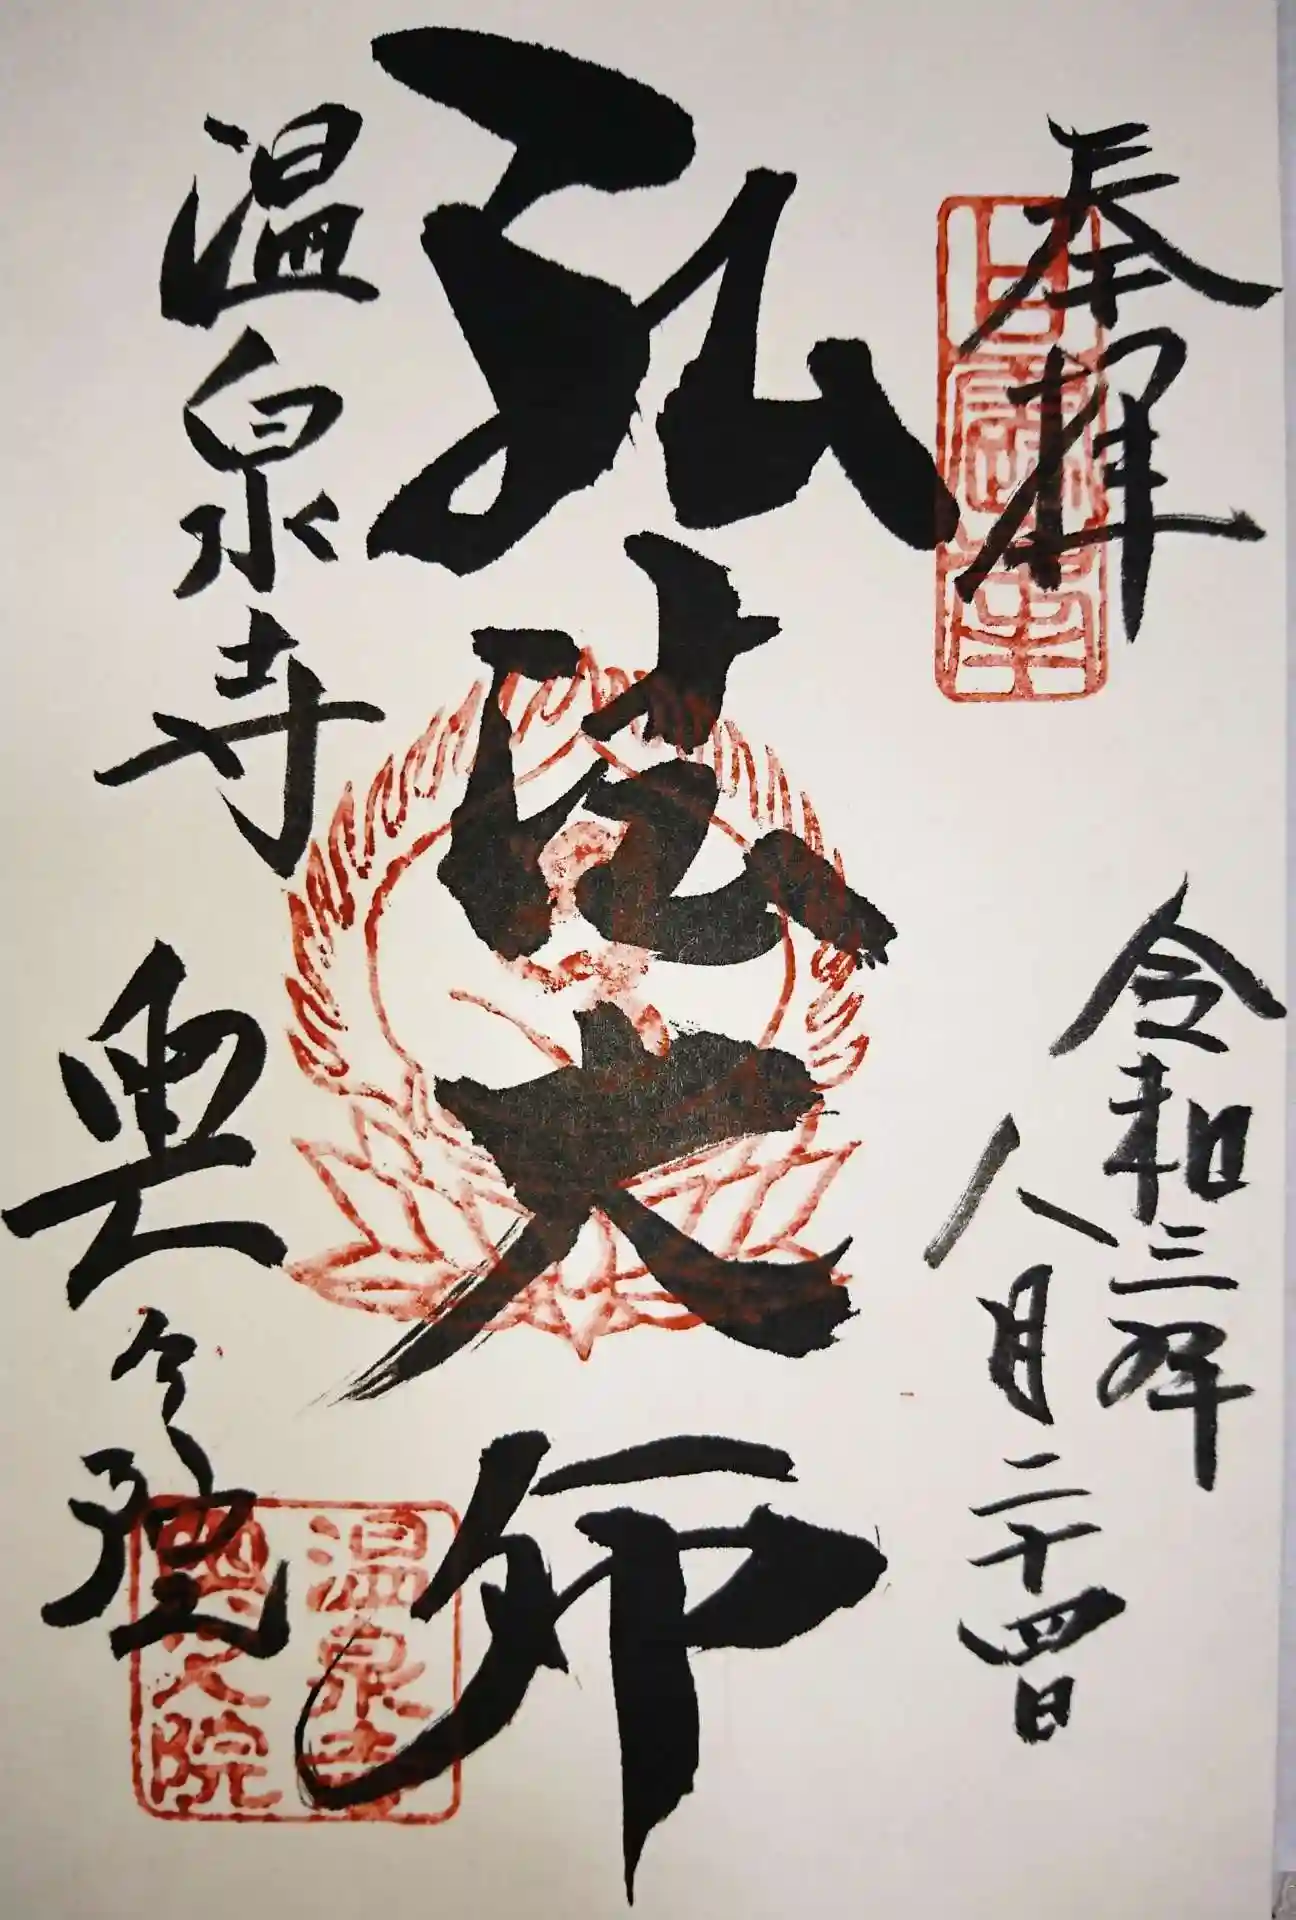 奉拝
令和三年
八月二十四日
弘法大師
温泉寺
奥之院
温泉寺
奥之院